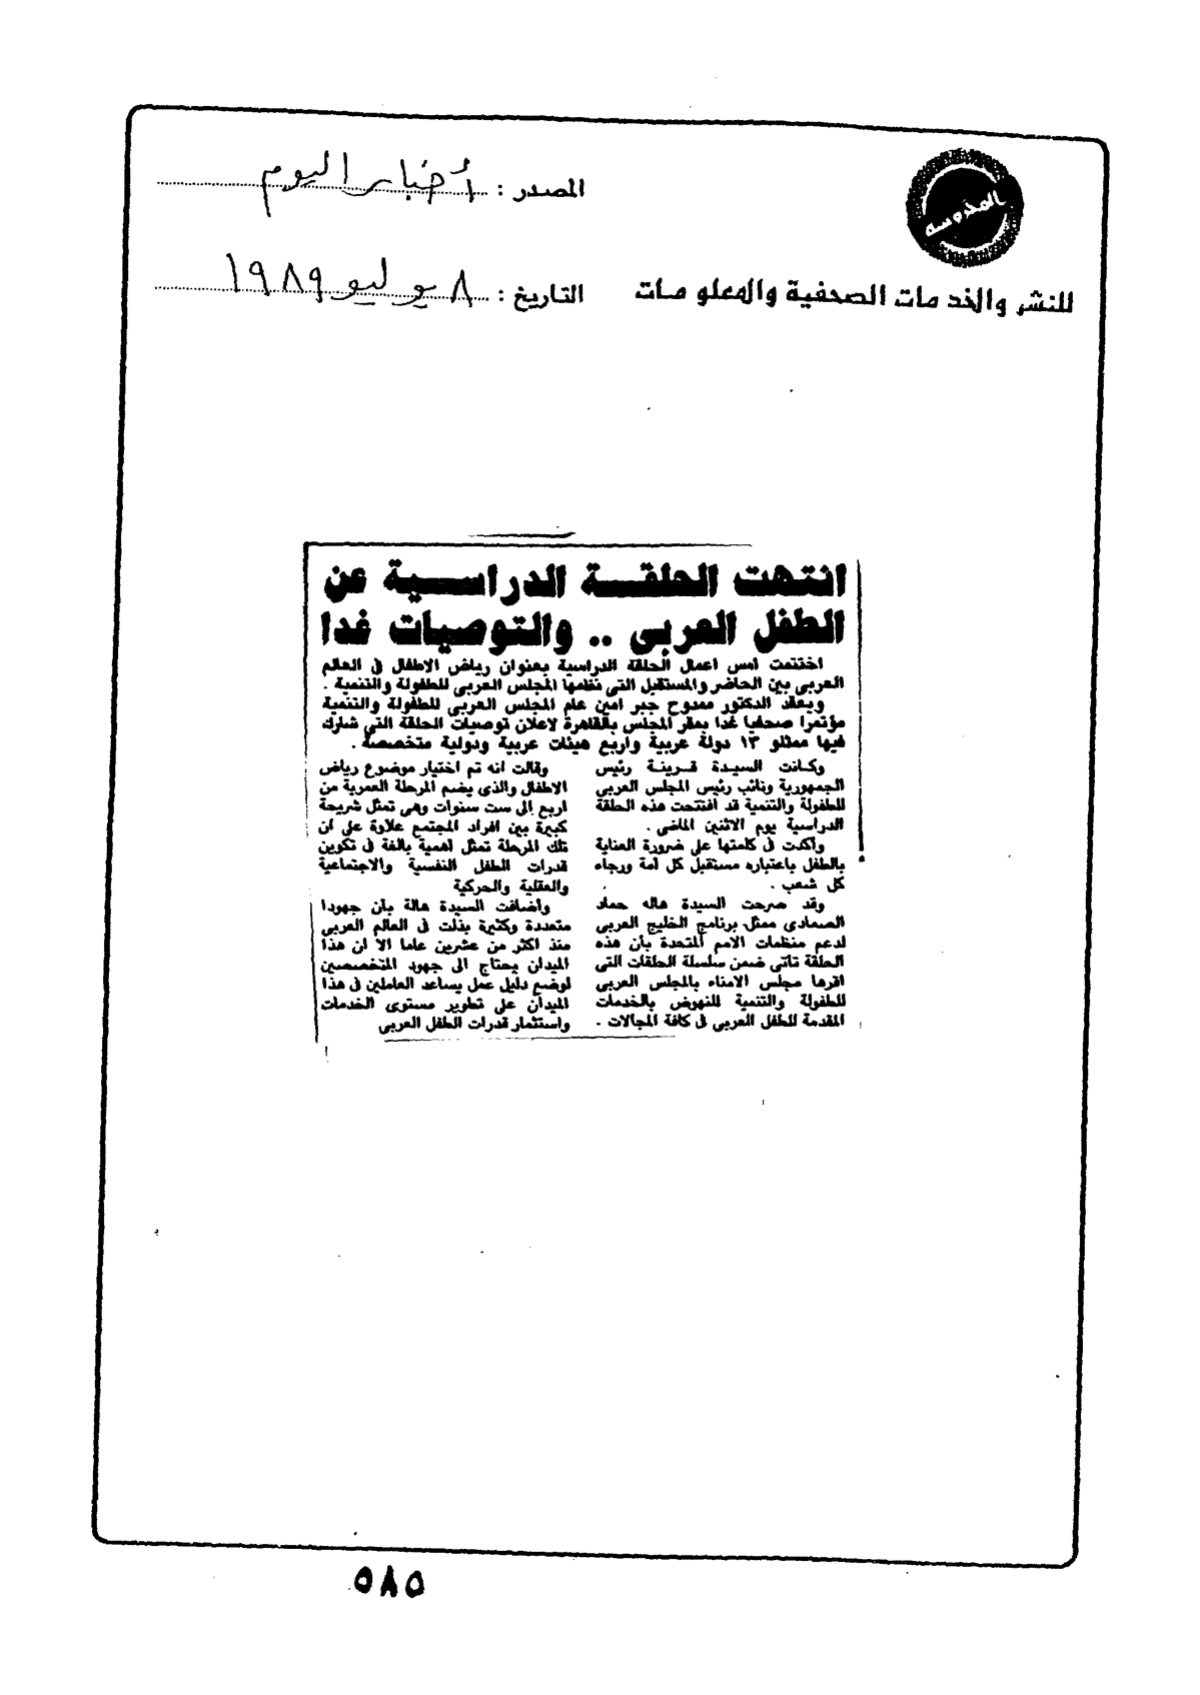 المحروسه
للنشر والخدمات الصحفية والمعلومات
المصدر : أخبار اليوم
التاريخ : ٨ يوليو ١٩٨٩
انتهت الحلقة الدراسية عن
الطفل العربى .. والتوصيات غدا
اختتمت امس اعمال الحلقة الدراسية بعنوان رياض الاطفال فى العالم
العربى بين الحاضر والمستقبل التى نظمها المجلس العربى للطفولة والتنمية .
ويعقد الدكتور ممدوح جبر امين عام المجلس العربى للطفولة والتنمية
مؤتمرا صحفيا غدا بمقر المجلس بالقاهرة لاعلان توصيات الحلقة التى شارك
فيها ممثلو ١٣ دولة عربية واربع هيئات عربية ودولية متخصصة .
وكانت السيدة قرينة رئيس
الجمهورية ونائب رئيس المجلس العربى
للطفولة والتنمية قد افتتحت هذه الحلقة
الدراسية يوم الاثنين الماضى .
واكدت فى كلمتها على ضرورة العناية
بالطفل باعتباره مستقبل كل امة ورجاء
كل شعب .
وقد صرحت السيدة هاله حماد
الصمادى ممثل برنامج الخليج العربى
لدعم منظمات الامم المتحدة بأن هذه
الحلقة تأتى ضمن سلسلة الحلقات التى
اقرها مجلس الامناء بالمجلس العربى
للطفولة والتنمية للنهوض بالخدمات
المقدمة للطفل العربى فى كافة المجالات .
وقالت انه تم اختيار موضوع رياض
الاطفال والذى يضم المرحلة العمرية من
اربع إلى ست سنوات وهى تمثل شريحة
كبيرة بين افراد المجتمع علاوة على ان
تلك المرحلة تمثل اهمية بالغة فى تكوين
قدرات الطفل النفسية والاجتماعية
والعقلية والحركية
وأضافت السيدة هالة بأن جهودا
متعددة وكثيرة بذلت فى العالم العربى
منذ اكثر من عشرين عاما الا ان هذا
الميدان يحتاج الى جهود المتخصصين
لوضع دليل عمل يساعد العاملين فى هذا
الميدان على تطوير مستوى الخدمات
واستثمار قدرات الطفل العربى
٥٨٥